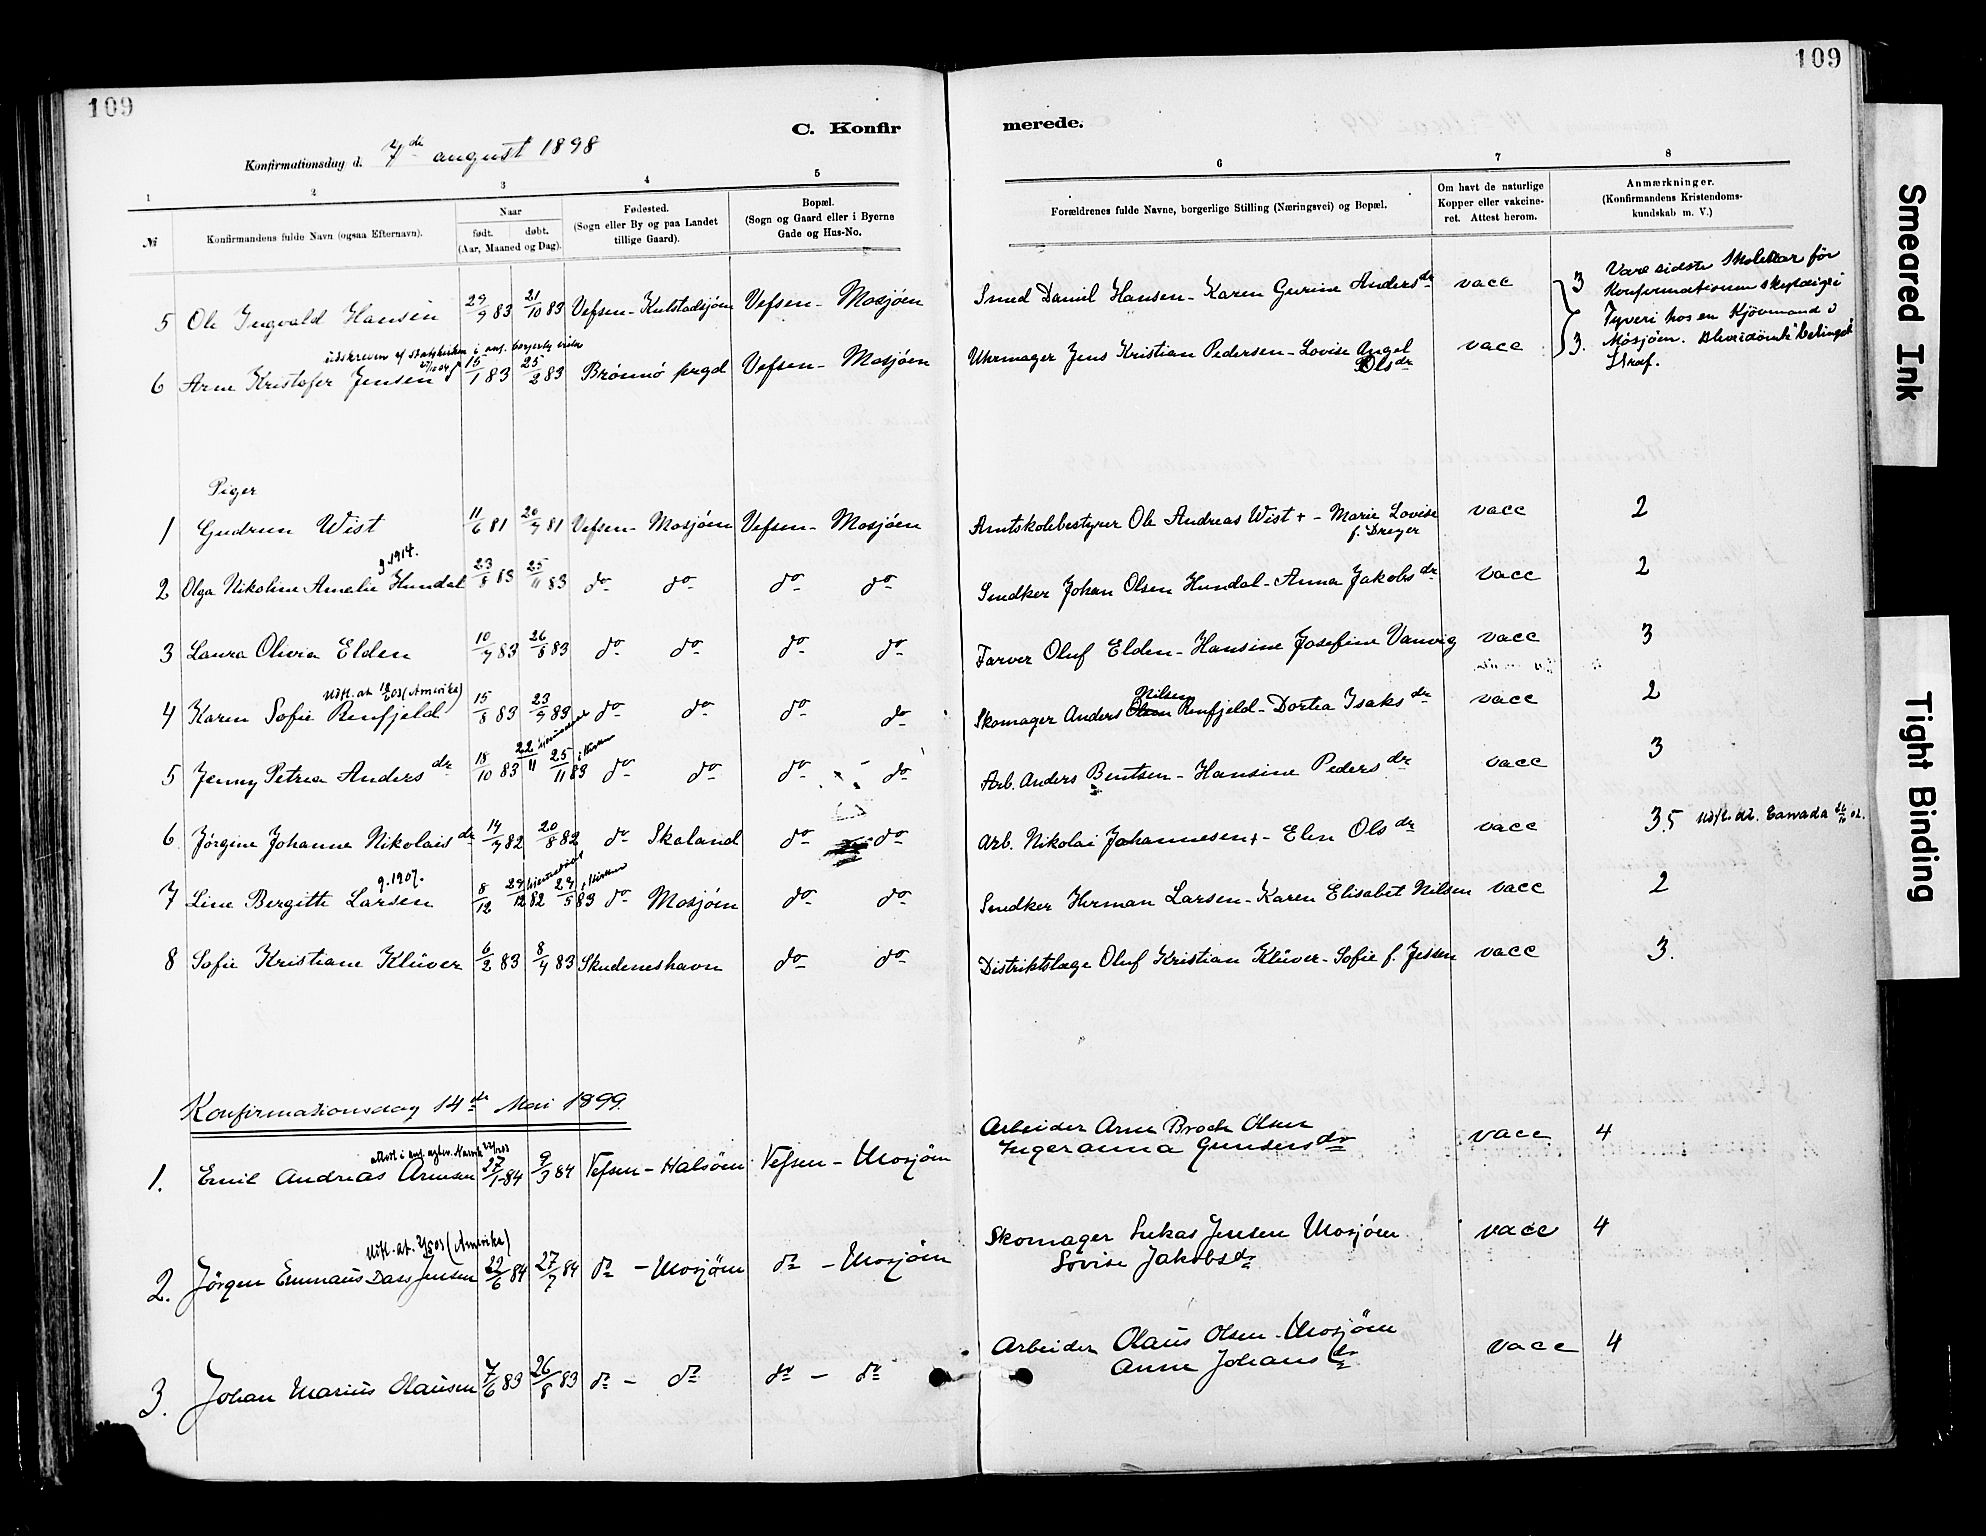 109
109
C. Konfirmerede.
Konfirmationsdag d. 7de august 1898
1 2 3 4 5 6 7 8
№
Konfirmandens fulde Navn (ogsaa Efternavn).
Naar
født. døbt.
(Aar, Maaned og Dag).
Fødested.
(Sogn eller By og paa Landet
tillige Gaard).
Bopæl.
(Sogn og Gaard eller i Byerne
Gade og Hus-No.
Forældrenes fulde Navne, borgerlige Stilling (Næringsvei) og Bopæl.
Om havt de naturlige
Kopper eller vakcineret. Attest herom.
Anmærkninger.
(Konfirmandens Kristendomskundskab m. V.)
5 Ole Ingvald Hansen 29/9 83 21/10 83 Vefsen - Kulstadsjøen Vefsen - Mosjøen Smed Daniel Hansen - Karen Gurine Andersdr vacc 3
Vare sidste Skoleaar før
Konfirmationen skyldige i
Tyveri hos en Kjøbmand i
Mosjøen. betinget
Straf.
udskreven af Statskirken
6 Arne Kristofer Jensen 15/1 83 25/2 83 Brønnø prgd Vefsen - Mosjøen Uhrmager Jens Kristian Pedersen - Lovise Angel
Olsdr vacc 3.
Piger
1 Gudrun Wist 11/6 81 20/7 81 Vefsen - Mosjøen Vefsen - Mosjøen Amtskolebestyrer Ole Andreas Wist + - Marie Lovise
f. Dreyer vacc 2
g. 1914.
2 Olga Nikoline Amalie Hundal 23/8 83 25/11 83 do do do do Snedker Johan Olsen Hundal - Anna Jakobsdr vacc 2
3 Laura Olivia Elden 10/7 83 26/8 83 do do do do Farver Oluf Elden - Hansine Josefine Vanvig vacc 3
Udfl. at. (Amerika)
4 Karen Sofie Renfjeld 15/8 83 23/9 83 do do do do Skomager Anders Nilsen Renfjeld - Dortea Isaksdr vacc 2
5 Jenny Petrea Andersdr 18/10 83 22/11 hjemmedøbt 25/11 83 i Kirken do do do do Arb. Anders Bentsen - Hansine Pedersdr vacc 3
6 Jørgine Johanne Nikolaisdr 14/7 82 20/8 82 do Skaland do do Arb. Nikolai Johannesen + - Elen Olsdr vacc 3.5 Udfl. at. Canada
g. 1907.
7 Line Bergitte Larsen 8/12 29/12 82 hjemmedøbt 27/5 83 i Kirken do Mosjøen do do Snedker Herman Larsen - Karen Elisabet Nilsen vacc 2
8 Sofie Kristiane Klüver 6/2 83 8/4 83 Skudeneshavn do do Distriktslæge Oluf Kristian Klüver - Sofie f. Jessen vacc 3.
Konfirmationsdag 14de Mai 1899.
1. Emil Andreas Arnesen 27/1 84 9/3 84 Vefsen - Halsøen Vefsen - Mosjøen Arbeider Arne Broch Olsen
Ingeranna Gundersdr vacc 4
Udfl. at. (Amerika)
2. Jørgen Emmaus Dass Jensen 22/6 84 27/7 84 do - Mosjøen do - Mosjøen Skomager Lukas Jensen Mosjøen
Lovise Jakobsdr vacc 4
3. Johan Marius Olausen 7/6 83 26/8 83 do - do do - do Arbeider Olaus Olsen - Mosjøen
Anne Johansdr vacc 4
Smeared Ink
Tight Binding